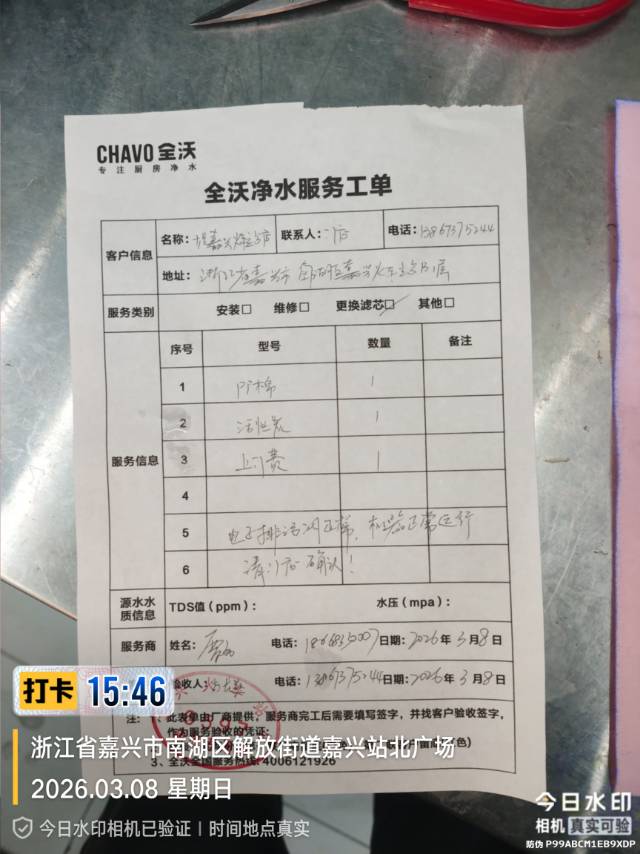 CHAVO 全沃
专注厨房净水
全沃净水服务工单
客户信息
名称：
联系人：
电话：13867375244
地址：浙江省嘉兴市
服务类别
安装□ 维修□ 更换滤芯□ 其他□
服务信息
序号 型号 数量 备注
1 PP棉 1
2 活性炭 1
3 上门费 1
4
5 电子排污阀正常，机器正常运行
6 请门店确认！
源水水质信息
TDS值（ppm）： 水压（mpa）：
服务商
姓名： 电话： 日期：2026年3月8日
验收人
电话：13867375244 日期：2026年3月8日
注：1、此表单由厂商提供，服务商完工后需要填写签字，并找客户验收签字，
作为服务验收的凭证；
3、全沃全国服务热线：4006121926
打卡 15:46
浙江省嘉兴市南湖区解放街道嘉兴站北广场
2026.03.08 星期日
今日水印相机已验证 | 时间地点真实
今日水印
相机 真实可验
防伪 P99ABCM1EB9XDP